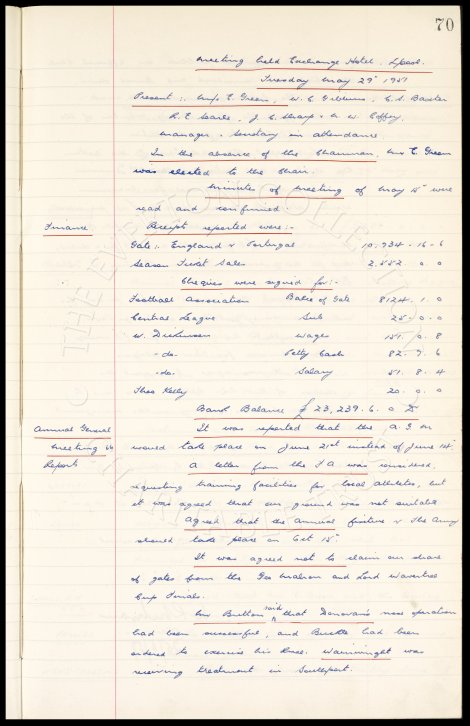 70
Meeting held Exchange Hotel, Lpool.
Tuesday May 29th 1951
Present:- Mrs E. Green, W. C. Gibbins, C. S. Baxter
R. E. Searle, J. C. Sharp & W.
Manager & Secretary in attendance
In the absence of the Chairman, E. Green
was elected to the Chair.
Minutes of meeting of May 15th were
read and confirmed
Finance. Receipts reported were:-
Gate:- England v Portugal 10,734 - 15 - 6
Season Ticket Sales 2,552 0 0
Cheques were signed for:-
Football Association Balce of Gate 8124 . 1 . 0
Central League Sub 25 . 0 . 0
W. Dickinson Wages 151 . 0 . 8
-do- Petty Cash 82 . 7 . 6
-do- Salary 51 . 8 . 4
Theo Kelly 20 . 0 . 0
Bank Balance £23,239 . 6 . 0
Annual General It was reported that the A G M
Meeting would take place on June 21st instead of June 14th
Reports A letter from the F A was considered,
requesting training facilities for local athletes, but
it was agreed that our ground was not suitable
Agreed that the annual fixture v The Army
should take place on Oct 15th
It was agreed not to claim our share
of gates from the Geo Mahon and Lord Wavertree
Cup Finals.
Mr Britton said that Donovan's nose operation
had been successful, and Buckle had been
ordered to exercise his knee. Wainwright was
receiving treatment in Southport.
© THE EVERTON COLLECTION